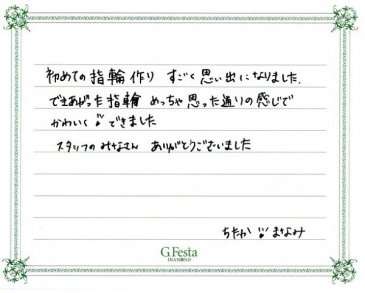 初めての指輪作り すごく思い出になりました.
できあがった指輪 めっちゃ思った通りの感じで
かわいく♪できました
スタッフのみなさん ありがとうございました
ちたか♪まなみ
G.Festa
DIAMOND